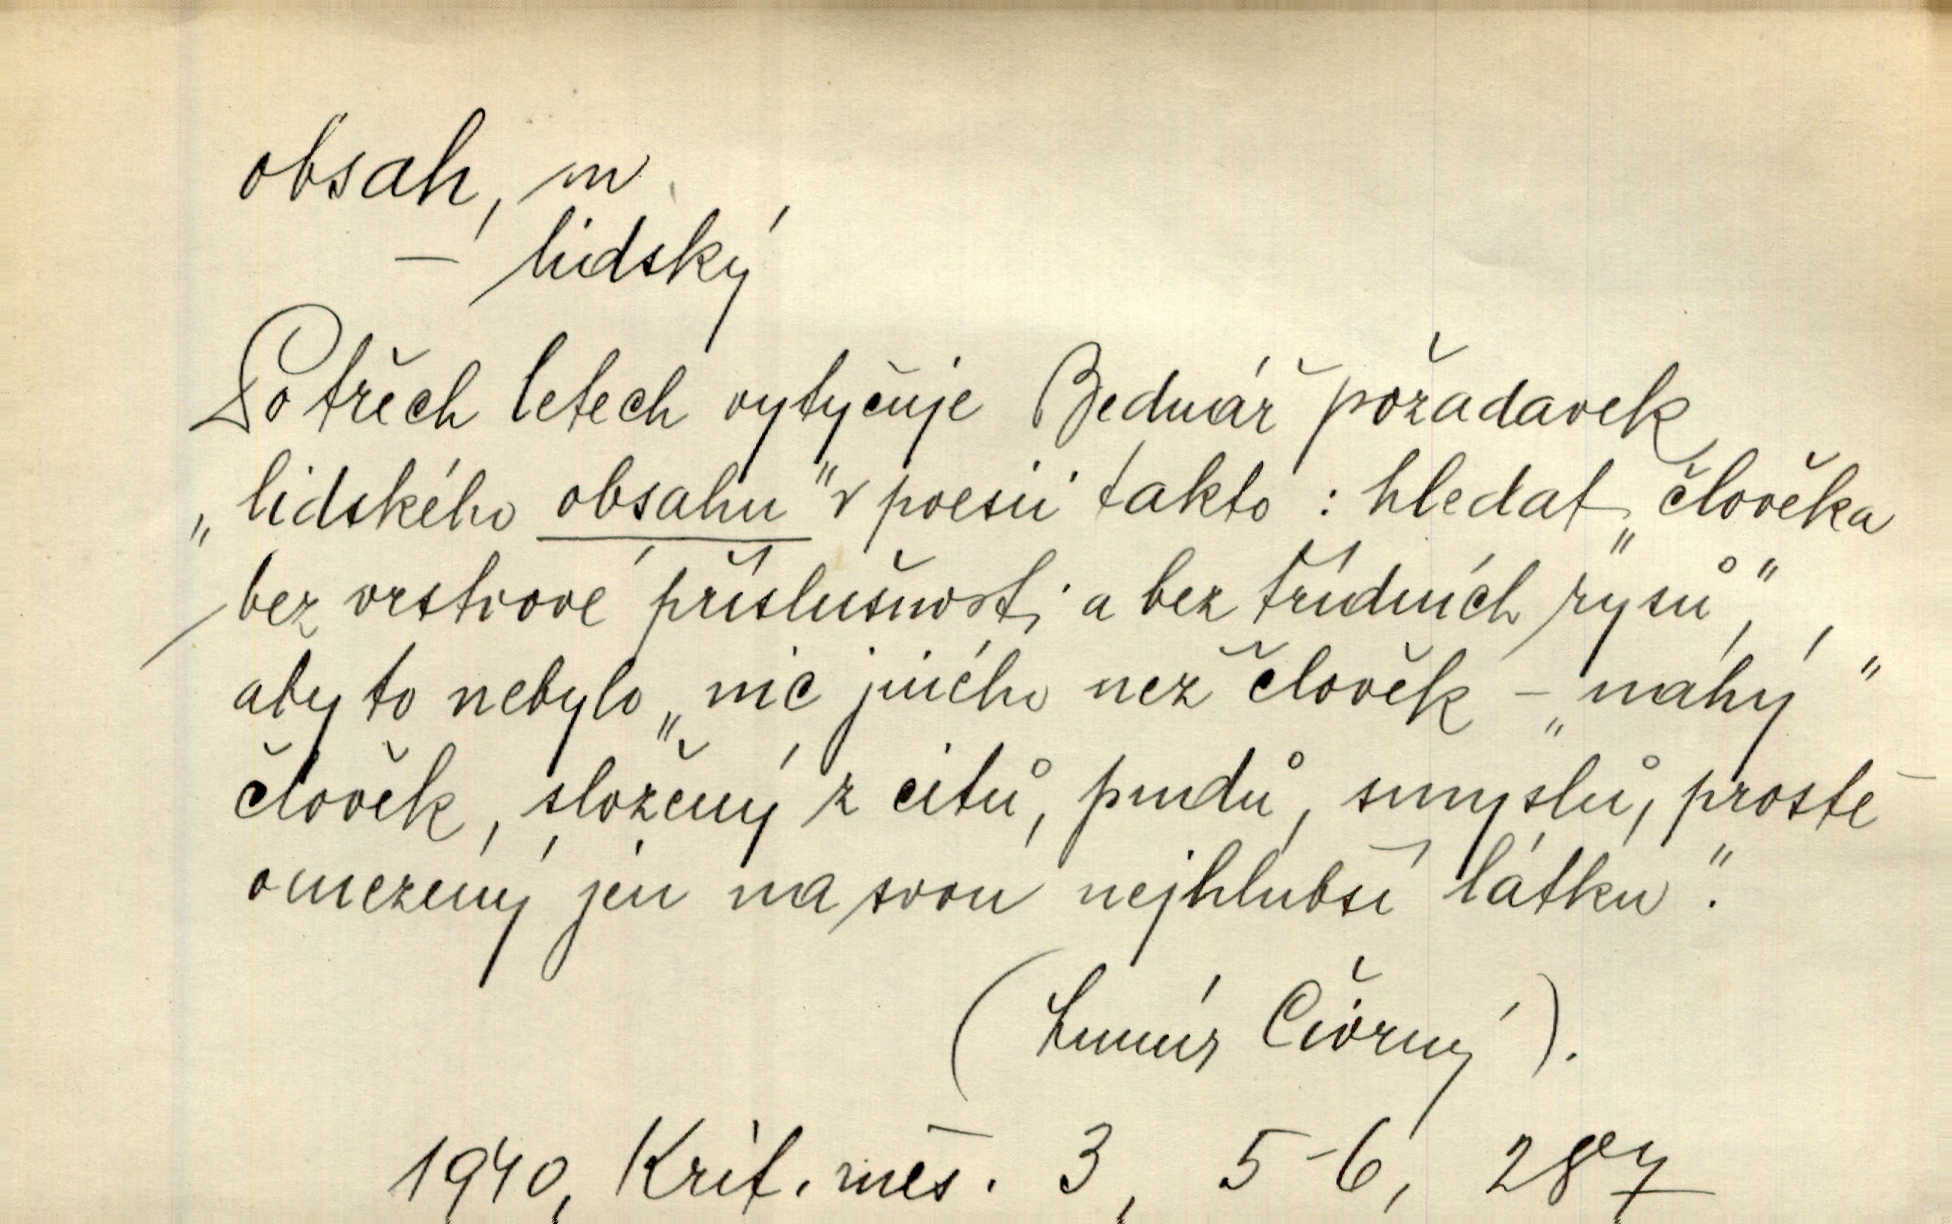 obsah, m
— lidský
Po třech letech vytyčuje Bednář požadavek
„lidského obsahu" v poesii takto : hledat „člověka
bez vrstvové příslušnosti a bez třídních rysů",
aby to nebylo „nic jiného než člověk – „nahý"
člověk, složený z citů, pudů, smyslů, prostě
omezený jen na svou nejhlubší látku".
(Lumír Čivrný).
1940, Krit. měs. 3, 5-6, 287